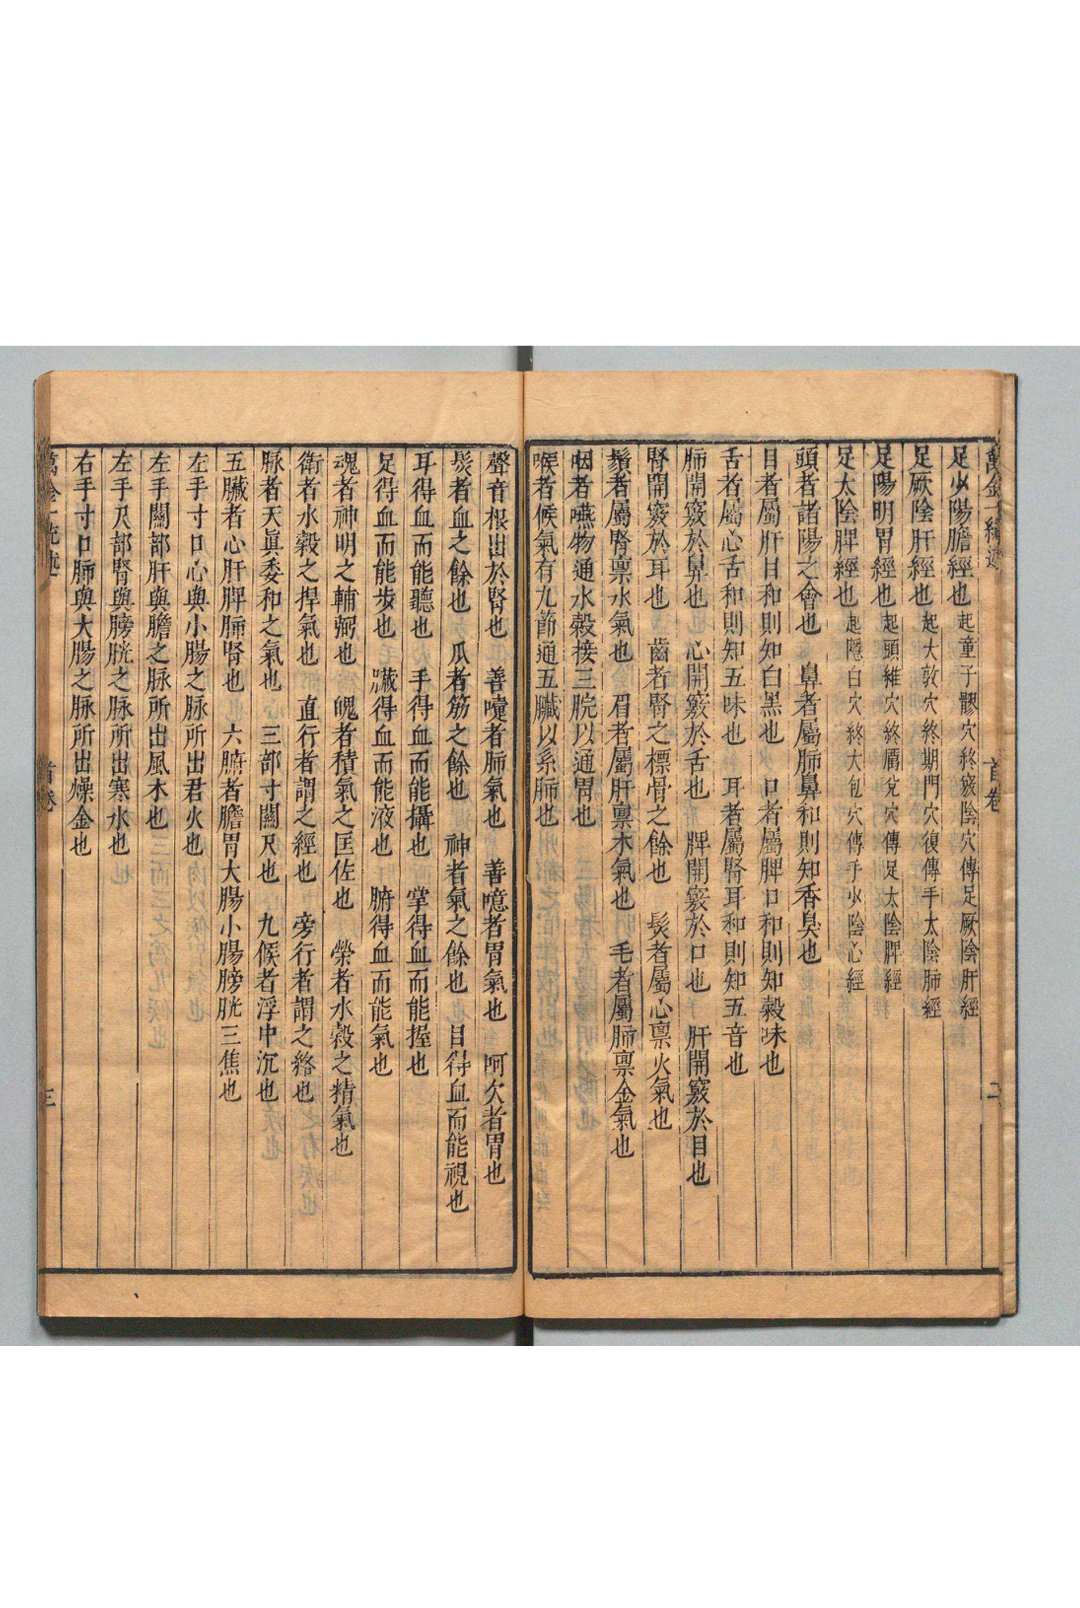 足少陽膽經也 起童子髎穴終竅陰穴傳足厥陰肝經
足厥陰肝經也 起大敦穴終期門穴復傳手太陰肺經
足陽明胃經也 起頭維穴終厲兌穴傳足太陰脾經
足太陰脾經也 起隱白穴終大包穴傳手少陰心經
頭者諸陽之會也 鼻者屬肺鼻和則知香臭也
目者屬肝目和則知白黑也 口者屬脾口和則知穀味也
舌者屬心舌和則知五味也 耳者屬腎耳和則知五音也
肺開竅於鼻也 心開竅於舌也 脾開竅於口也 肝開竅於目也
腎開竅於耳也 齒者腎之標骨之餘也 髮者屬心稟火氣也
鬚者屬腎稟水氣也 眉者屬肝稟木氣也 毛者屬肺稟金氣也
咽者嚥物通水穀接三脘以通胃也
喉者候氣有九節通五臟以系肺也
首卷
二
聲音根出於腎也 善嚏者肺氣也 善噫者胃氣也 呵欠者胃也
髮者血之餘也 爪者筋之餘也 神者氣之餘也 目得血而能視也
耳得血而能聽也 手得血而能攝也 掌得血而能握也
足得血而能步也 臟得血而能液也 腑得血而能氣也
魂者神明之輔弼也 魄者積氣之匡佐也 榮者水穀之精氣也
衛者水穀之捍氣也 直行者謂之經也 旁行者謂之絡也
脉者天眞委和之氣也 三部寸關尺也 九候者浮中沉也
五臟者心肝脾肺腎也 六腑者膽胃大腸小腸膀胱三焦也
左手寸口心與小腸之脉所出君火也
左手關部肝與膽之脉所出風木也
左手尺部腎與膀胱之脉所出寒水也
右手寸口肺與大腸之脉所出燥金也
萬金一統述
首卷
三